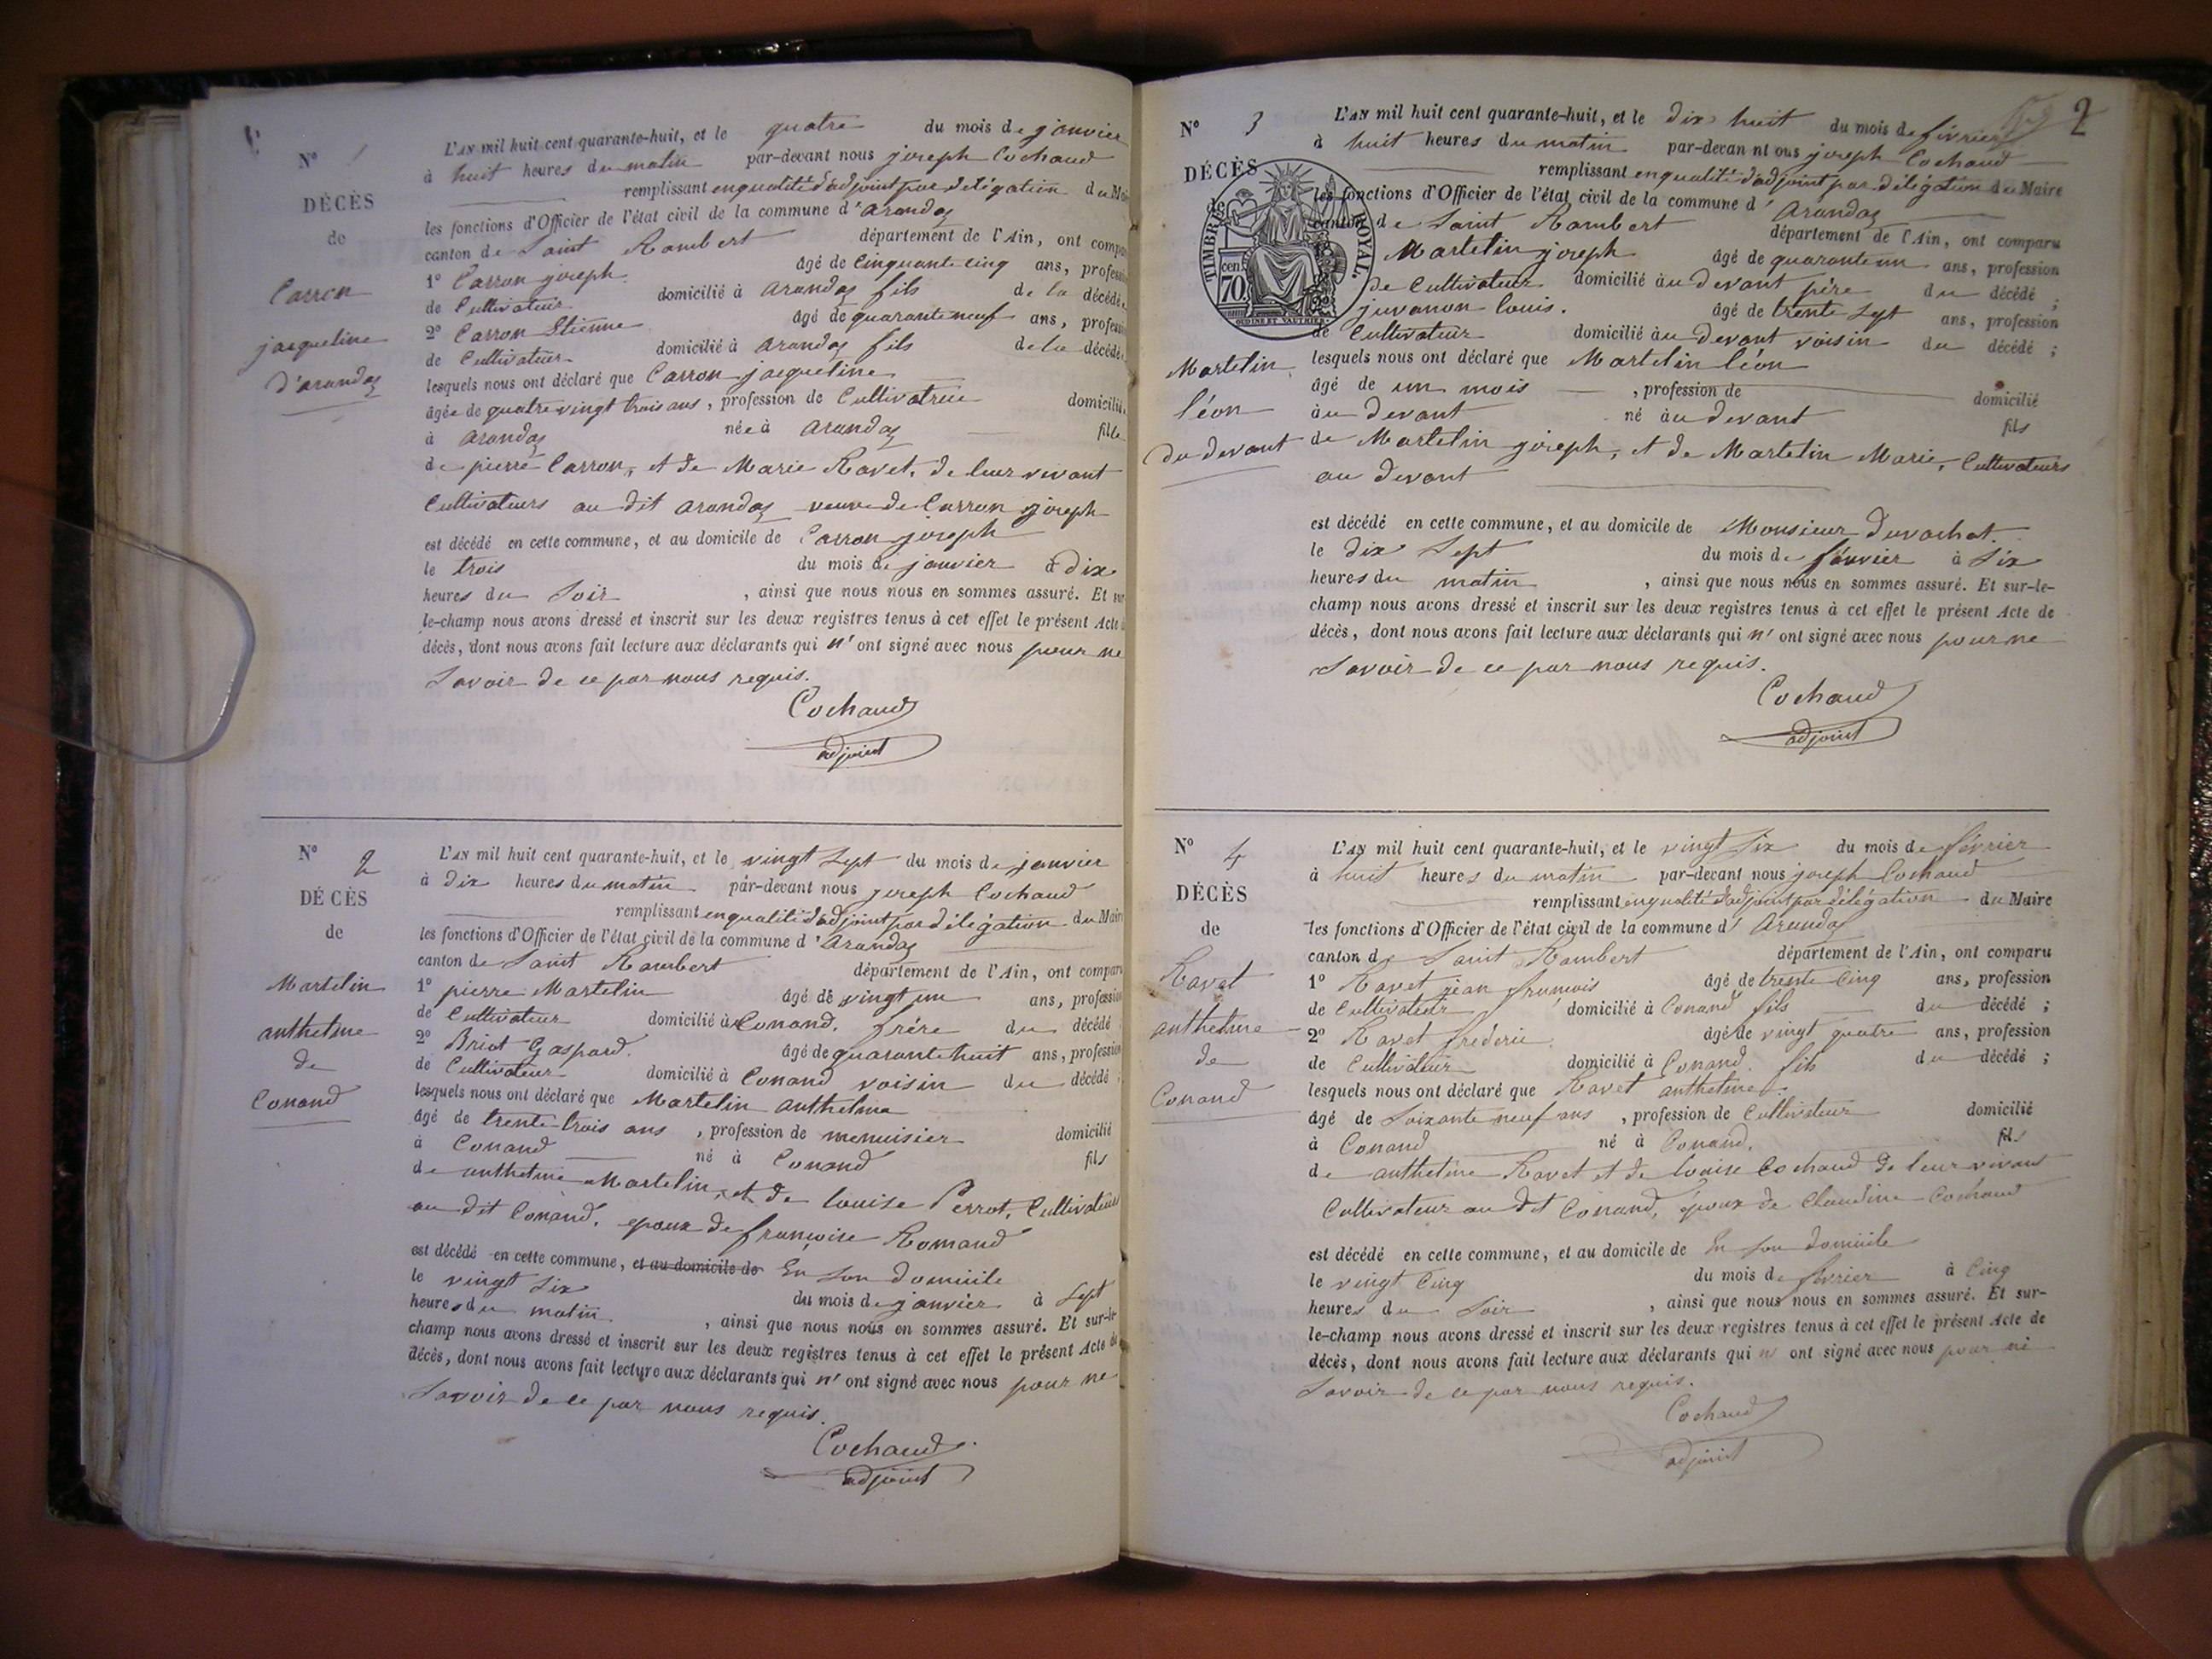 N° 1
DÉCÈS
de
Carron
jacqueline
d'arandas
L'AN mil huit cent quarante-huit, et le quatre du mois de janvier
à huit heures du matin par-devant nous joseph Cochaud
remplissant en qualité d'adjoint par délégation du Mai
les fonctions d'Officier de l'état civil de la commune d'arandas
canton de Saint Rambert département de l'Ain, ont compa
1° Carron joseph âgé de Cinquante cinq ans, profess
de Cultivateur domicilié à arandas fils de la décédé
2° Carron Etienne âgé de quarante neuf ans, profess
de Cultivateur domicilié à arandas fils de la décédé
lesquels nous ont déclaré que Carron jacqueline
âgée de quatre vingt trois ans, profession de Cultivatrice domicilié
à arandas née à arandas fille
de pierre Carron, et de Marie Ravet, de leur vivant
Cultivateurs au dit arandas veuve de Carron joseph
est décédé en cette commune, et au domicile de Carron joseph
le trois du mois de janvier à dix
heures du Soir, ainsi que nous nous en sommes assuré. Et sur
le-champ nous avons dressé et inscrit sur les deux registres tenus à cet effet le présent Acte
décès, dont nous avons fait lecture aux déclarants qui n'ont signé avec nous pour ne
Savoir de ce par nous requis.
Cochaud
adjoint
N° 2
DÉCÈS
de
Martelin
anthelme
de
Conand
L'AN mil huit cent quarante-huit, et le vingt Sept du mois de janvier
à dix heures du matin par-devant nous joseph Cochaud
remplissant en qualité d'adjoint par délégation du Mair
les fonctions d'Officier de l'état civil de la commune d'Arandas
canton de Saint Rambert département de l'Ain, ont compar
1° pierre Martelin âgé de vingt un ans, professio
de Cultivateur domicilié à Conand. frère du décédé
2° Briot Gaspard. âgé de quarante huit ans, profession
de Cultivateur domicilié à Conand voisin du décédé
lesquels nous ont déclaré que Martelin anthelme
âgé de trente trois ans, profession de menuisier domicilié
à Conand né à Conand fils
de anthelme Martelin, et de louise Perrot, Cultivateurs
au dit Conand, epoux de françoise Romand
est décédé en cette commune, et au domicile de En Son domicile
le vingt Six du mois de janvier à Sept
heures du matin, ainsi que nous nous en sommes assuré. Et sur-le
champ nous avons dressé et inscrit sur les deux registres tenus à cet effet le présent Acte de
décès, dont nous avons fait lecture aux déclarants qui n'ont signé avec nous pour ne
Savoir de ce par nous requis.
Cochaud
adjoint
2
N° 3
DÉCÈS
de
TIMBRE ROYAL.
cen. 70.
OUDINE ET VAUTHIER
Martelin
léon
du devant
L'AN mil huit cent quarante-huit, et le dix huit du mois de février
à huit heures du matin par-devan nt ous joseph Cochaud
remplissant en qualité d'adjoint par délégation du Maire
les fonctions d'Officier de l'état civil de la commune d'Arandas
canton de Saint Rambert département de l'Ain, ont comparu
Martelin joseph âgé de quarante un ans, profession
de Cultivateur domicilié au devant père du décédé ;
juvanon louis. âgé de trente Sept ans, profession
de Cultivateur domicilié au devant voisin du décédé ;
lesquels nous ont déclaré que Martelin léon
âgé de un mois, profession de domicilié
au devant né au devant fils
de Martelin joseph, et de Martelin Marie, Cultivateurs
au devant
est décédé en cette commune, et au domicile de Monsieur duvachat.
le dix Sept du mois de février à Six
heures du matin, ainsi que nous nous en sommes assuré. Et sur-le-
champ nous avons dressé et inscrit sur les deux registres tenus à cet effet le présent Acte de
décès, dont nous avons fait lecture aux déclarants qui n'ont signé avec nous pour ne
Savoir de ce par nous requis.
Cochaud
adjoint
N° 4
DÉCÈS
de
Ravet
anthelme
de
Conand
L'AN mil huit cent quarante-huit, et le vingt Six du mois de février
à huit heures du matin par-devant nous joseph Cochaud
remplissant en qualité d'adjoint par délégation du Maire
les fonctions d'Officier de l'état civil de la commune d'Arandas
canton de Saint Rambert département de l'Ain, ont comparu
1° Ravet jean françois âgé de trente Cinq ans, profession
de Cultivateur domicilié à Conand fils du décédé ;
2° Ravet fréderic. âgé de vingt quatre ans, profession
de Cultivateur domicilié à Conand. fils du décédé ;
lesquels nous ont déclaré que Ravet anthelme
âgé de Soixante neuf ans, profession de Cultivateur domicilié
à Conand né à Conand. fils
de anthelme Ravet et de louise Cochaud de leur vivant
Cultivateur au dit Conand, époux de Claudine Cochaud
est décédé en cette commune, et au domicile de En Son domicile
le vingt Cinq du mois de février à Cinq
heures du Soir, ainsi que nous nous en sommes assuré. Et sur-
le-champ nous avons dressé et inscrit sur les deux registres tenus à cet effet le présent Acte de
décès, dont nous avons fait lecture aux déclarants qui n' ont signé avec nous pour ne
Savoir de ce par nous requis.
Cochaud
adjoint